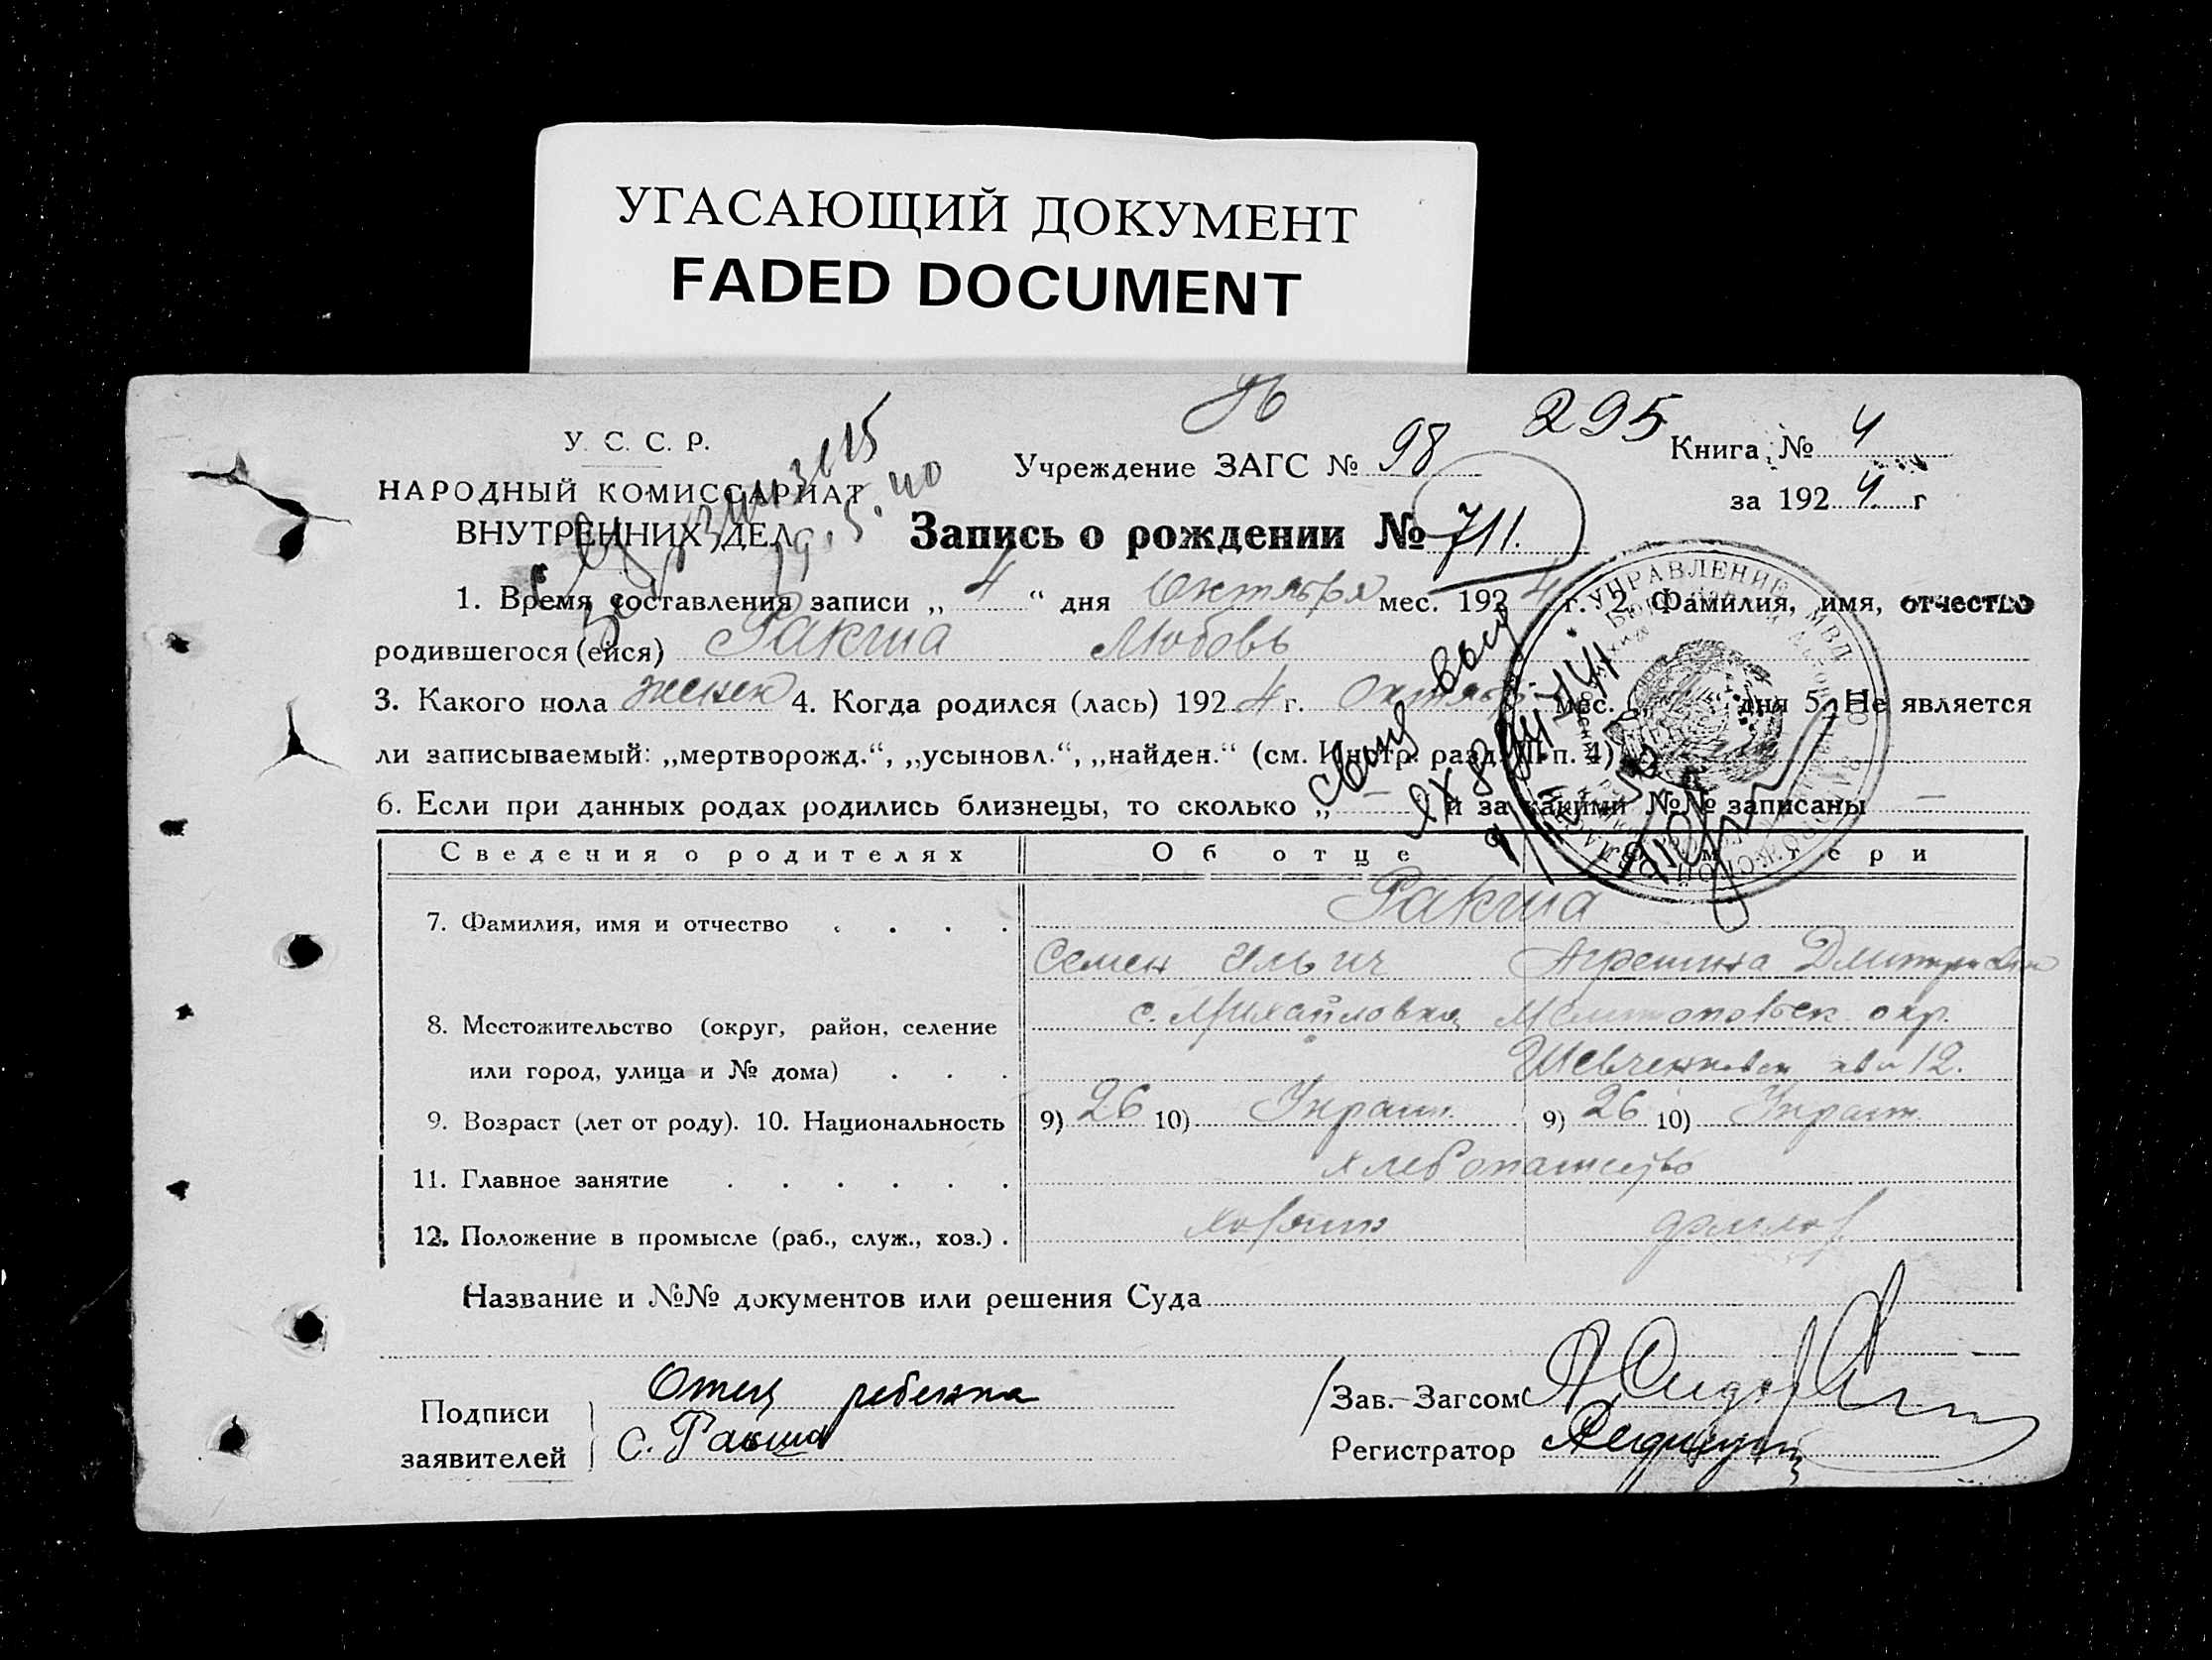 УГАСАЮЩИЙ ДОКУМЕНТ
FADED DOCUMENT
295
У. С. С. Р.
НАРОДНЫЙ КОМИССАРИАТ
ВНУТРЕННИХ ДЕЛ
Учреждение ЗАГС № 98
Книга № 4
за 1924 г
Запись о рождении № 711.
1. Время составления записи „ 4 “ дня Октября мес. 1924 г. 2. Фамилия, имя, отчество
родившегося (ейся) Ракша Любовь
3. Какого пола женск 4. Когда родился (лась) 1924 г. Октябр. мес. дня 5. Не является
ли записываемый: „мертворожд.“, „усыновл.“, „найден.“ (см. Инстр. разд. II п. 4)
6. Если при данных родах родились близнецы, то сколько „ — “ и за какими №№ записаны —
Сведения о родителях Об отце О матери
7. Фамилия, имя и отчество . . . . Ракша
Семен Ильич Агрепина Дмитриевна
8. Местожительство (округ, район, селение с. Михайловка Мелитопольск окр.
или город, улица и № дома) . . . Шевченковск 12.
9. Возраст (лет от роду). 10. Национальность 9) 26 10) Украин. 9) 26 10) Украин.
11. Главное занятие . . . . . . хлебопашество
12. Положение в промысле (раб., служ., хоз.) . хозяин
Название и №№ документов или решения Суда
Подписи
заявителей
Отец ребенка
С. Ракша
Зав. Загсом
Регистратор
УПРАВЛЕНИЕ МВД ПО ЗАПОРОЖСКОЙ ОБЛАСТИ